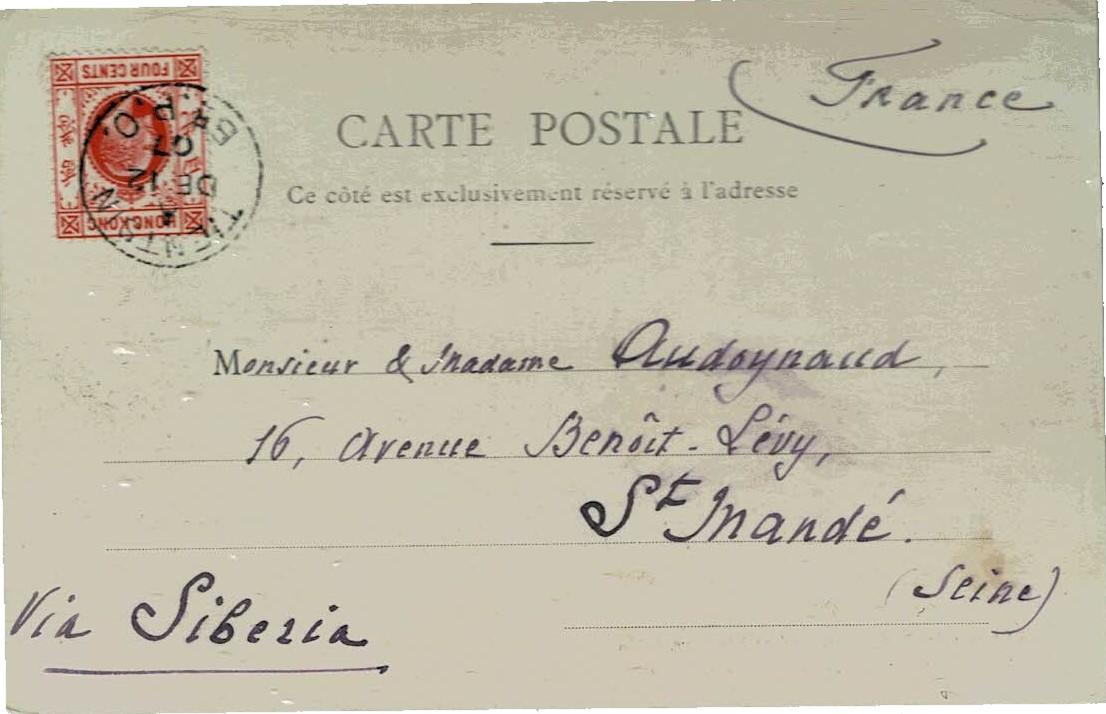 FOUR CENTS
HONGKONG
BR. P. O.
TIENTSIN
DE 12
07
France
CARTE POSTALE
Ce côté est exclusivement réservé à l'adresse
Monsieur & Madame Audoynaud,
16, Avenue Benoît-Lévy,
St Mandé.
(Seine)
Via Siberia